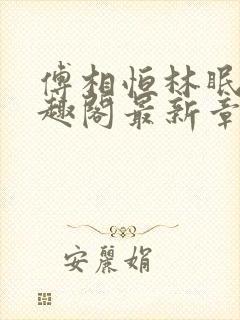 傅相恒林眠
趣阁最新章
安麗娟